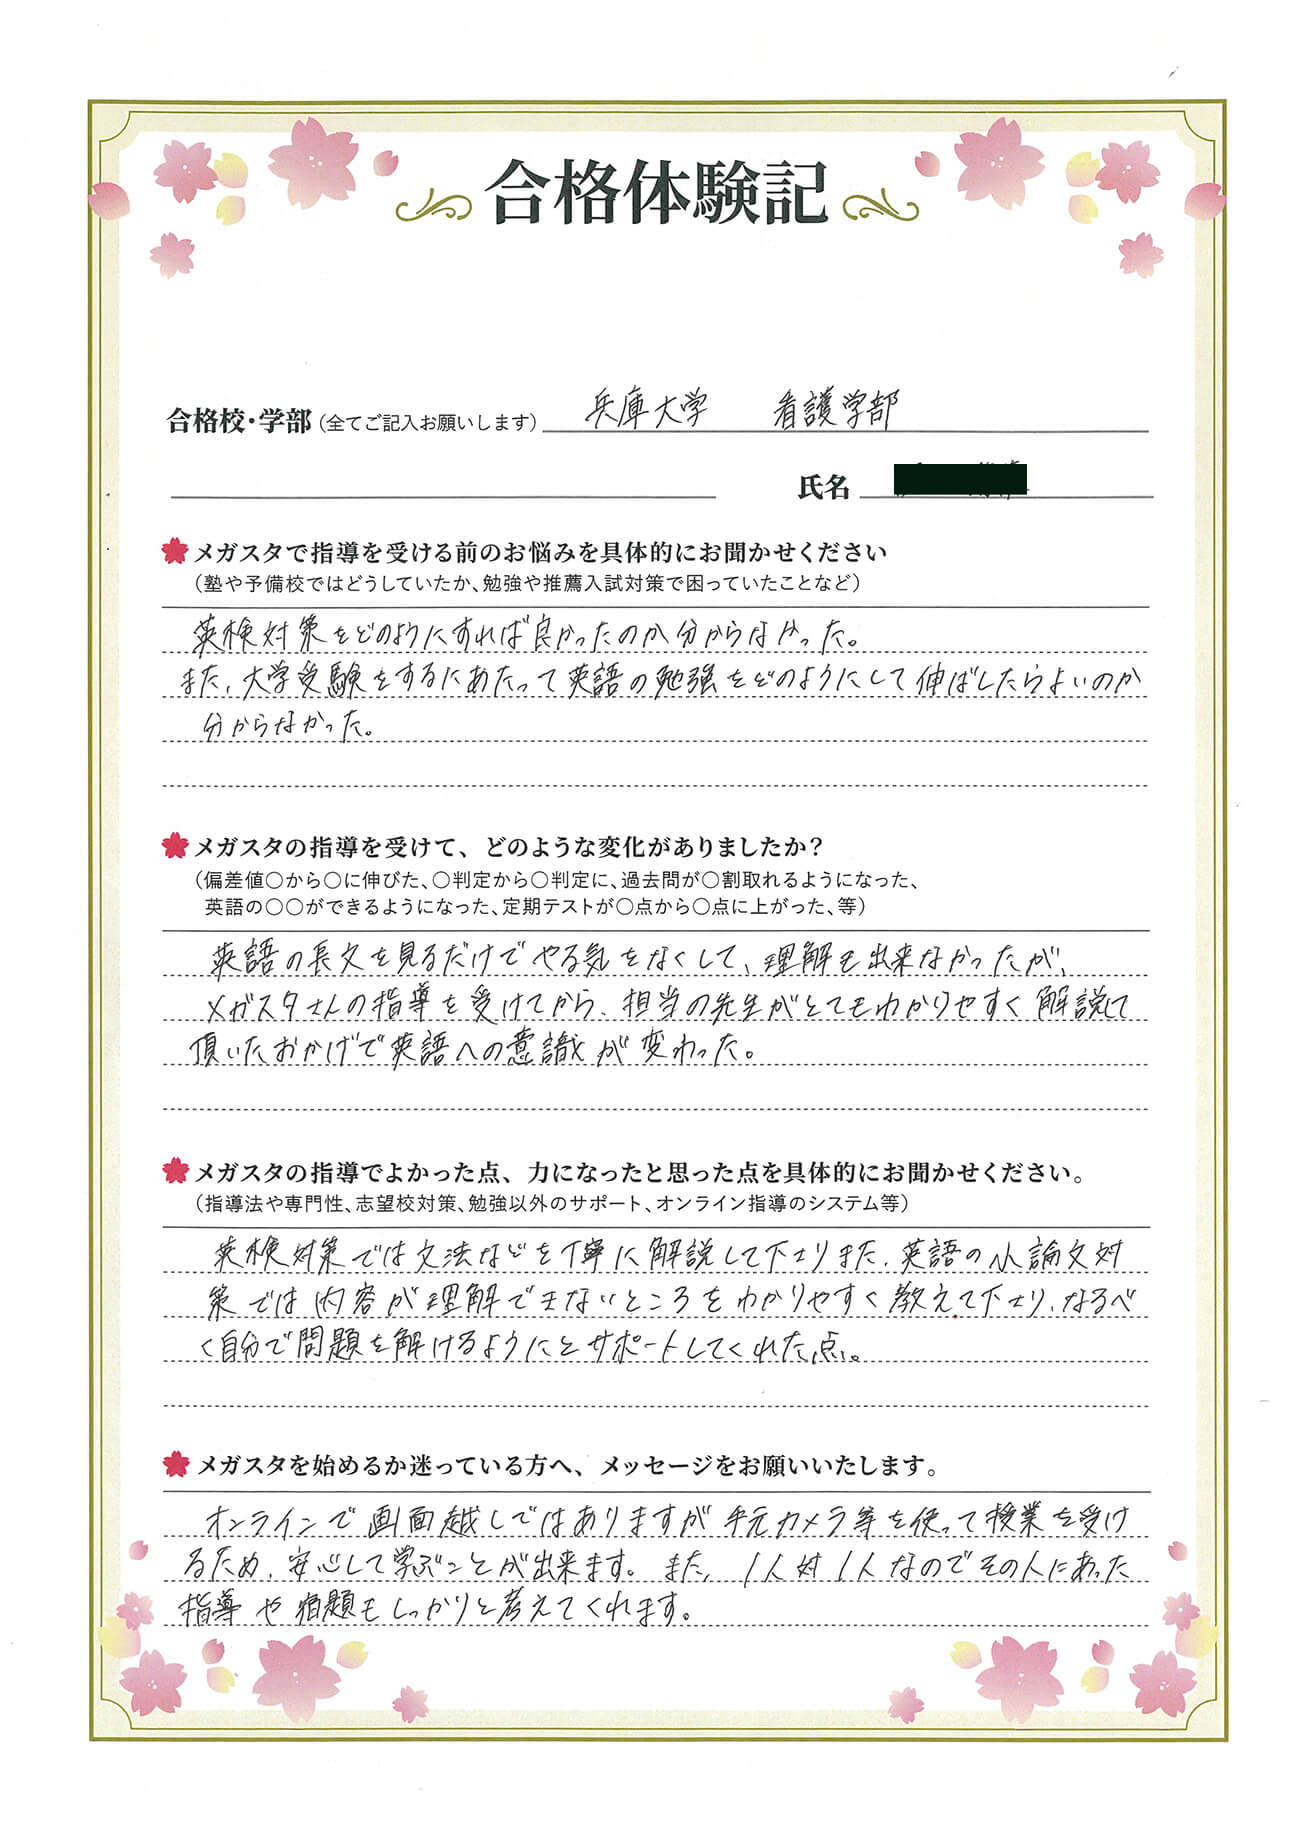 合格体験記
合格校・学部(全てご記入お願いします) 兵庫大学 看護学部
氏名
メガスタで指導を受ける前のお悩みを具体的にお聞かせください
(塾や予備校ではどうしていたか、勉強や推薦入試対策で困っていたことなど)
英検対策をどのようにすれば良かったのか分からなかった。
また、大学受験をするにあたって英語の勉強をどのようにして伸ばしたらよいのか
分からなかった。
メガスタの指導を受けて、どのような変化がありましたか？
(偏差値〇から〇に伸びた、〇判定から〇判定に、過去問が〇割取れるようになった、
英語の〇〇ができるようになった、定期テストが〇点から〇点に上がった、等)
英語の長文を見るだけでやる気をなくして、理解も出来なかったが、
メガスタさんの指導を受けてから、担当の先生がとてもわかりやすく解説して
頂いたおかげで英語への意識が変わった。
メガスタの指導でよかった点、力になったと思った点を具体的にお聞かせください。
(指導法や専門性、志望校対策、勉強以外のサポート、オンライン指導のシステム等)
英検対策では文法などを丁寧に解説して下さりまた、英語の小論文対
策では内容が理解できないところをわかりやすく教えて下さり、なるべ
く自分で問題を解けるようにとサポートしてくれた点。
メガスタを始めるか迷っている方へ、メッセージをお願いいたします。
オンラインで画面越しではありますが手元カメラ等を使って授業を受け
るため、安心して学ぶことが出来ます。また、1人対1人なのでその人にあった
指導や宿題もしっかりと考えてくれます。